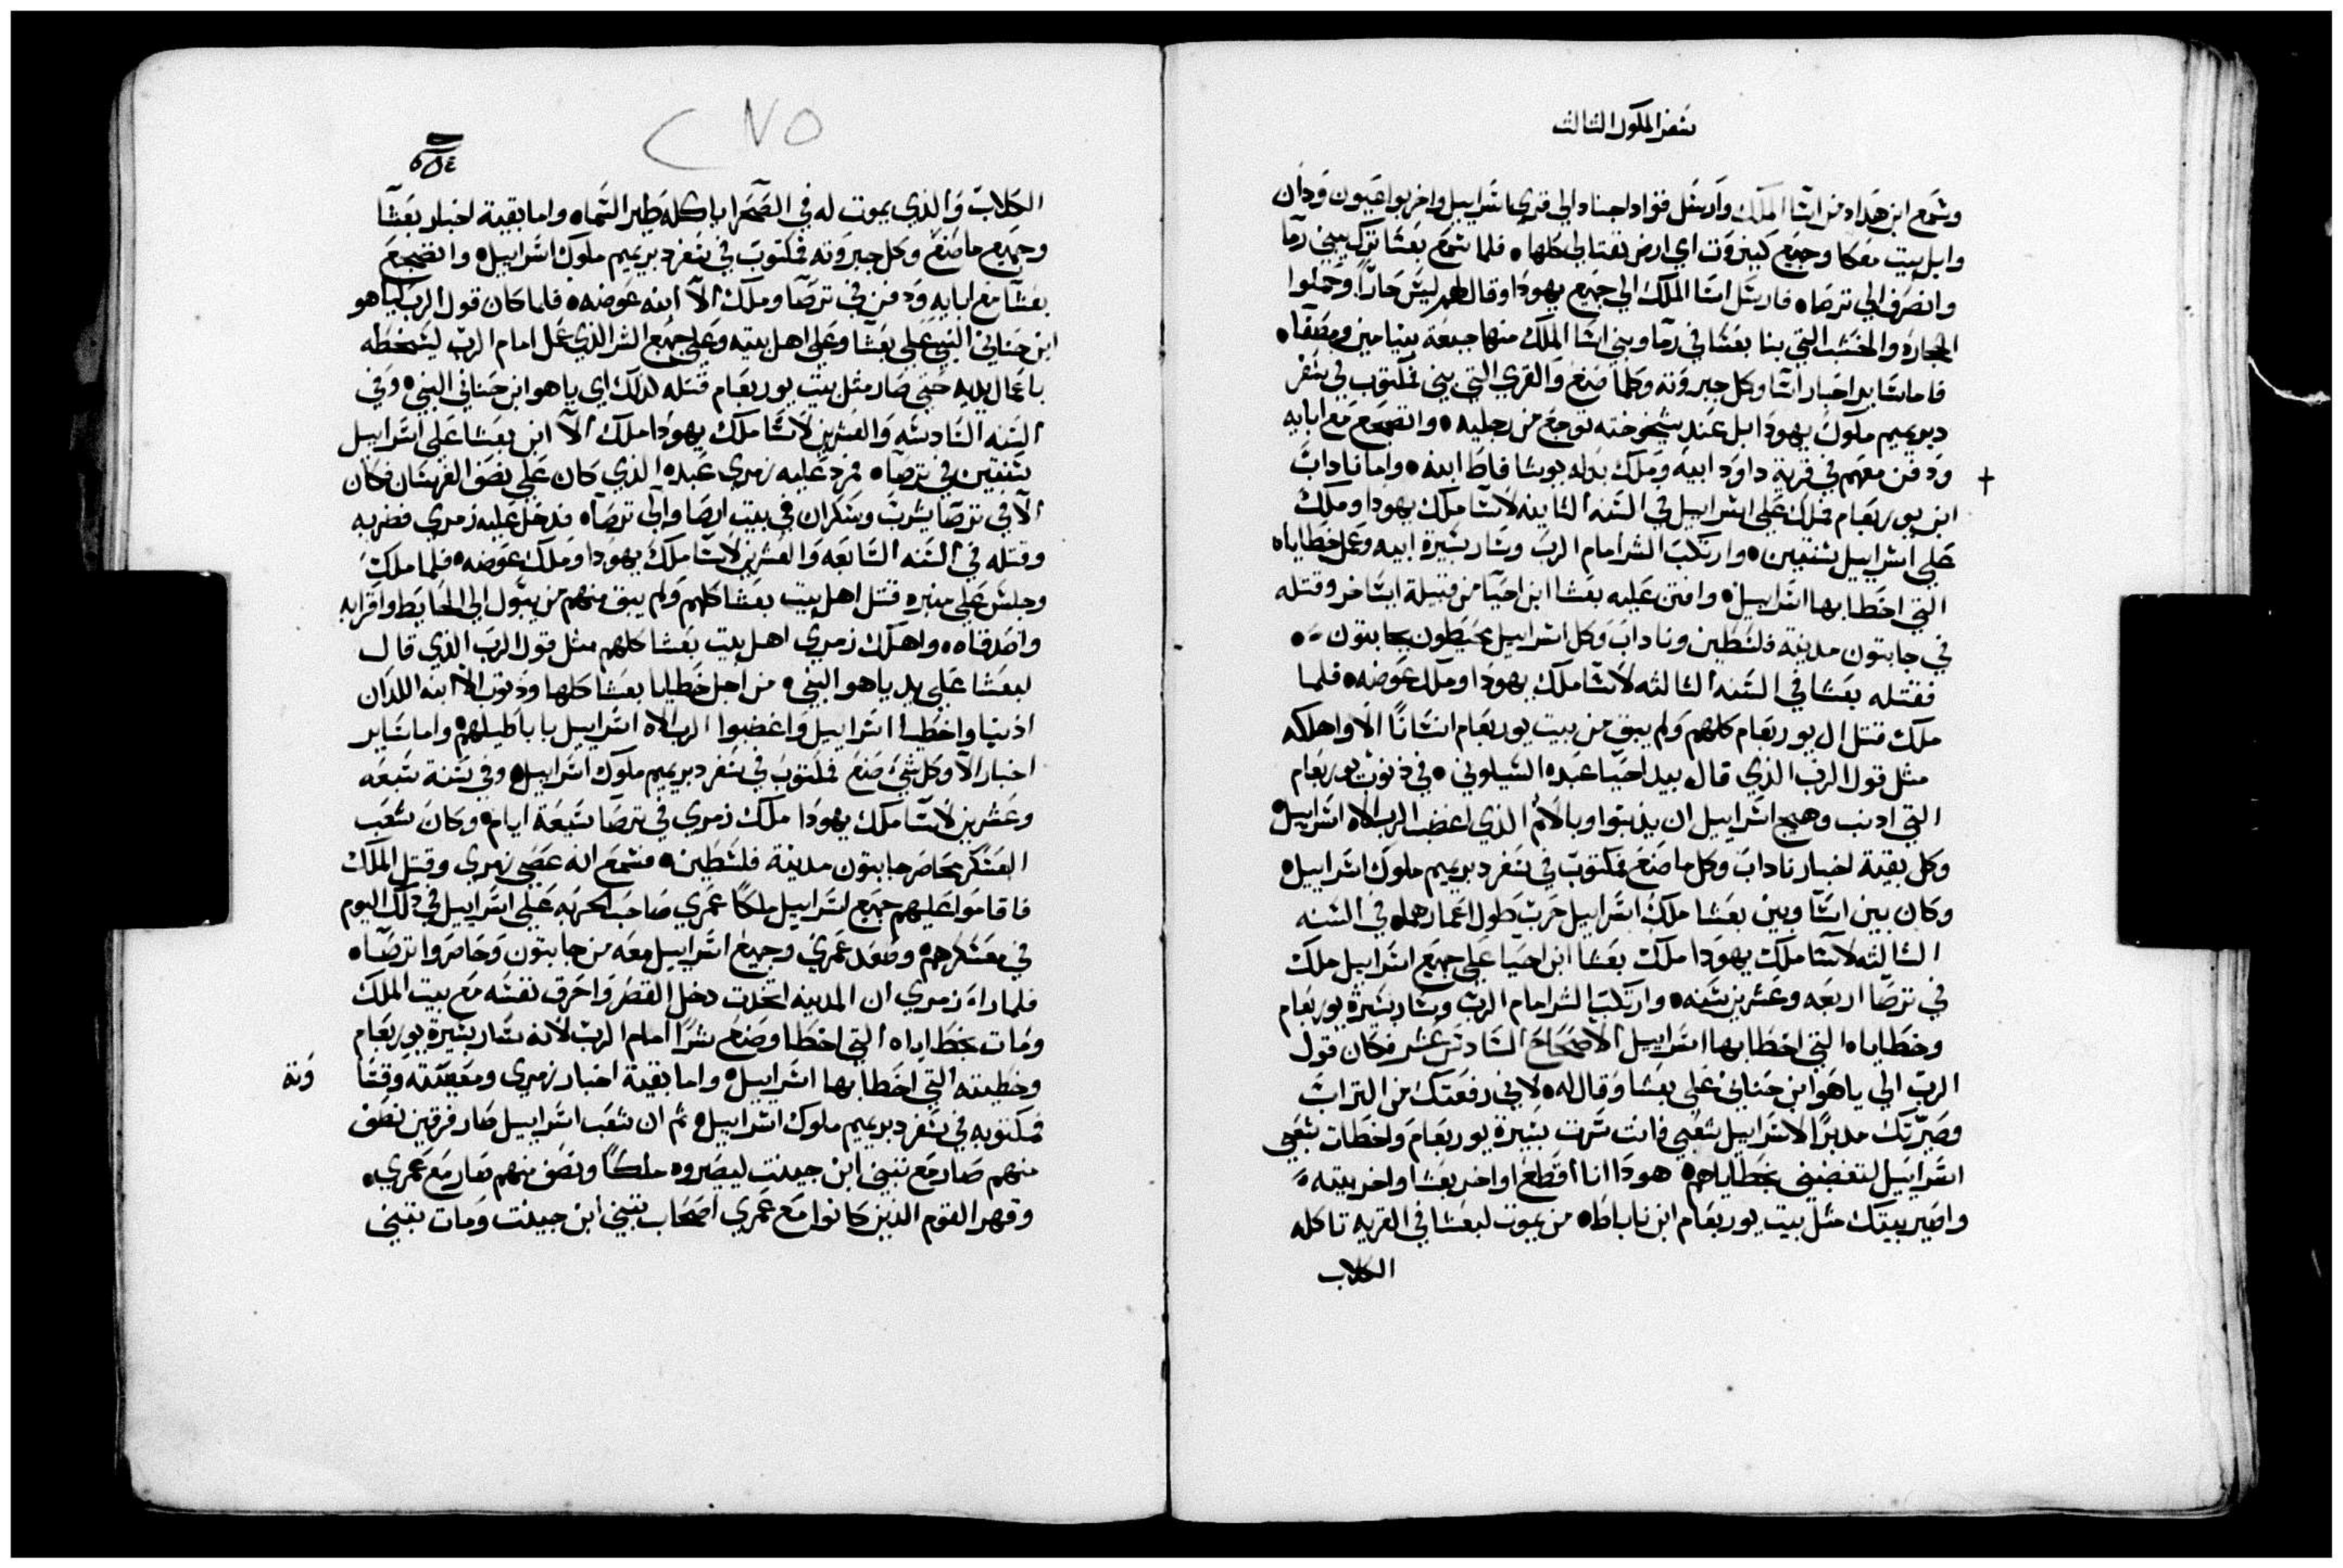 سفر الملوك الثالث
وسمع ابن هداد من اسا الملك وارسل قواد اجناد الي قري اسراييل واخربوا عيون ودان
وابل بيت معكا وجميع كنيروت اي ارض نفتالي كلها ٥ فلما سمع بعشا ترك يبني رآما
وانصرف الي ترصا ٥ فارسل اسا الملك الي جميع يهودا وقال لهم ليس حدًا وحملوا
الحجاره والخشب التي بنا بعشا في رآما وبني اسا الملك منها جبعة بنيامين ومصفا ٥
فاما ساير اخبار اسا وكل جبروته وكلما صنع والقري التي بني فمكتوب في سفر
دبريميم ملوك يهودا بل عند شيخوخته توجع من رجليه ٥ وانضجع مع ابايه
ودفن معهم في قرية داود ابيه وملك بدله يوشافاط ابنه ٥ واما ناداب
ابن يوربعام فملك علي اسراييل في السنه الثانيه لاسا ملك يهودا وملك
علي اسراييل سنتين ٥ وارتكب الشر امام الرب وسار بسيرة ابيه وعمل خطاياه
التي اخطا بها اسراييل ٥ وافتن عليه بعشا ابن احيا من قبيلة ايساخر وقتله
في جابتون مدينة فلسطين وناداب وكل اسراييل يحيطون بجابتون ٥
فقتله بعشا في السنه الثالثه لاسا ملك يهودا وملك عوضه ٥ فلما
ملك قتل ال يوربعام كلهم ولم يبق من بيت يوربعام انسانًا الا واهلكه
مثل قول الرب الذي قال بيد احيا عبده الشيلوني ٥ في ذنوب يوربعام
التي اذنب وهيج اسراييل ان يذنبوا وبالاثم الذي اغضب الرب الاه اسراييل ٥
وكل بقية اخبار ناداب وكل ما صنع فمكتوب في سفر دبريميم ملوك اسراييل ٥
وكان بين اسا وبين بعشا ملك اسراييل حرب طول اعمارهما ٥ في السنه
الثالثه لاسا ملك يهودا ملك بعشا ابن احيا علي جميع اسراييل ملك
في ترصا اربعه وعشرين سنه ٥ وارتكب الشر امام الرب وسار بسيرة يوربعام
وخطاياه التي اخطا بها اسراييل الاصحاح السادس عشر فكان قول
الرب الي ياهو ابن حناني علي بعشا وقال له ٥ لاني رفعتك من التراب
وصيرتك مدبرًا لاسراييل شعبي فانت سرت بسيرة يوربعام واخطات شعبي
اسراييل لتغضبني بخطاياهم ٥ هوذا انا اقطع اواخر بعشا واخر بيته ٥
واصير بيتك مثل بيت يوربعام ابن ناباط ٥ من يموت لبعشا في القريه تاكله
الكلاب
٢٧٥
الكلاب والذي يموت له في الصحرا ياكله طير السماء ٥ واما بقية اخبار بعشا
وجميع ما صنع وكل جبروته فمكتوب في سفر دبريميم ملوك اسراييل ٥ وانضجع
بعشا مع ابايه ودفن في ترصا وملك الآ ابنه عوضه ٥ فلما كان قول الرب لياهو
ابن حناني النبي علي بعشا وعلي اهل بيته وعلي جميع الشر الذي عمل امام الرب ليسخطه
باعمال يديه حتي صار مثل بيت يوربعام قتله لذلك اي ياهو ابن حناني النبي ٥ وفي
السنه السادسه والعشرين لاسا ملك يهودا ملك الآ ابن بعشا علي اسراييل
سنتين في ترصا ٥ فمرد عليه زمري عبده الذي كان علي نصف الفرسان فكان
الآ في ترصا يشرب وسكران في بيت ارصا والي ترصا ٥ فدخل عليه زمري فضربه
وقتله في السنه السابعه والعشرين لاسا ملك يهودا وملك عوضه ٥ فلما ملك
وجلس علي منبره قتل اهل بيت بعشا كلهم ولم يبق منهم من يبول الي الحايط واقرابه
واصدقاه ٥ واهلك زمري اهل بيت بعشا كلهم مثل قول الرب الذي قال
لبعشا علي يد ياهو النبي ٥ من اجل خطايا بعشا كلها وذنوب الآ ابنه اللذان
اذنبا واخطيا اسراييل واغضبوا الرب الاه اسراييل باباطيلهم ٥ واما ساير
اخبار الآ وكل شي صنع فمكتوب في سفر دبريميم ملوك اسراييل ٥ وفي سنة سبعه
وعشرين لاسا ملك يهودا ملك زمري في ترصا سبعة ايام ٥ وكان شعب
العسكر يحاصر جابتون مدينة فلسطين ٥ فسمع انه عصي زمري وقتل الملك
فاقاموا عليهم جميع اسراييل ملكًا عمري صاحب الحربه علي اسراييل في ذلك اليوم
في معسكرهم ٥ وصعد عمري وجميع اسراييل معه من جابتون وحاصروا ترصا ٥
فلما راة زمري ان المدينه اتخدت دخل القصر واحرق نفسه مع بيت الملك
ومات بخطاياه التي اخطا وصنع شرًا امام الرب لانه سار بسيرة يوربعام
وخطيته التي اخطا بها اسراييل ٥ واما بقية اخبار زمري ومعصيته وقسا
وته
فمكتوبه في سفر دبريميم ملوك اسراييل ٥ ثم ان شعب اسراييل صار فرقتين نصف
منهم صار مع تبني ابن جينت ليصيروه ملكًا ونصف منهم صار مع عمري ٥
وقهر القوم الذين كانوا مع عمري اصحاب تبني ابن جينت ومات تبني